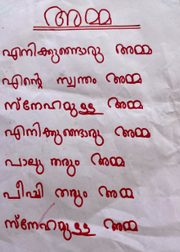 അമ്മ
എനിക്കുണ്ടൊരു അമ്മ
എന്റെ സ്വന്തം അമ്മ
സ്നേഹമുള്ള അമ്മ
എനിക്കുണ്ടൊരു അമ്മ
പാലു തരും അമ്മ
പീപ്പി തരും അമ്മ
സ്നേഹമുള്ള അമ്മ